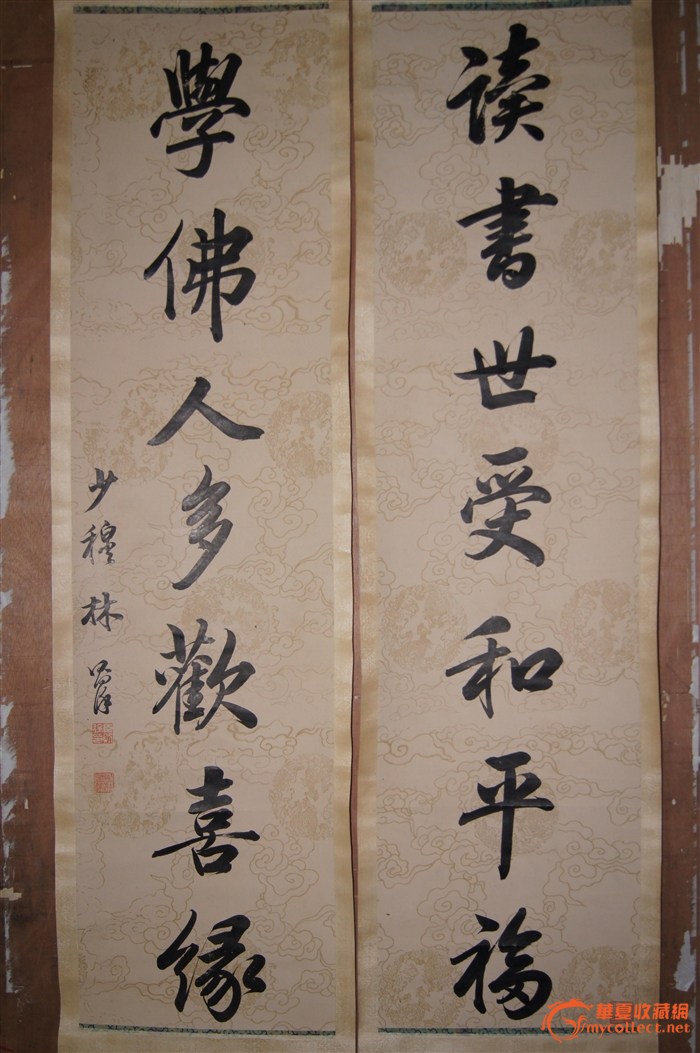 讀書世受和平福
學佛人多歡喜緣
少穆林
華夏收藏網
mycollect.net